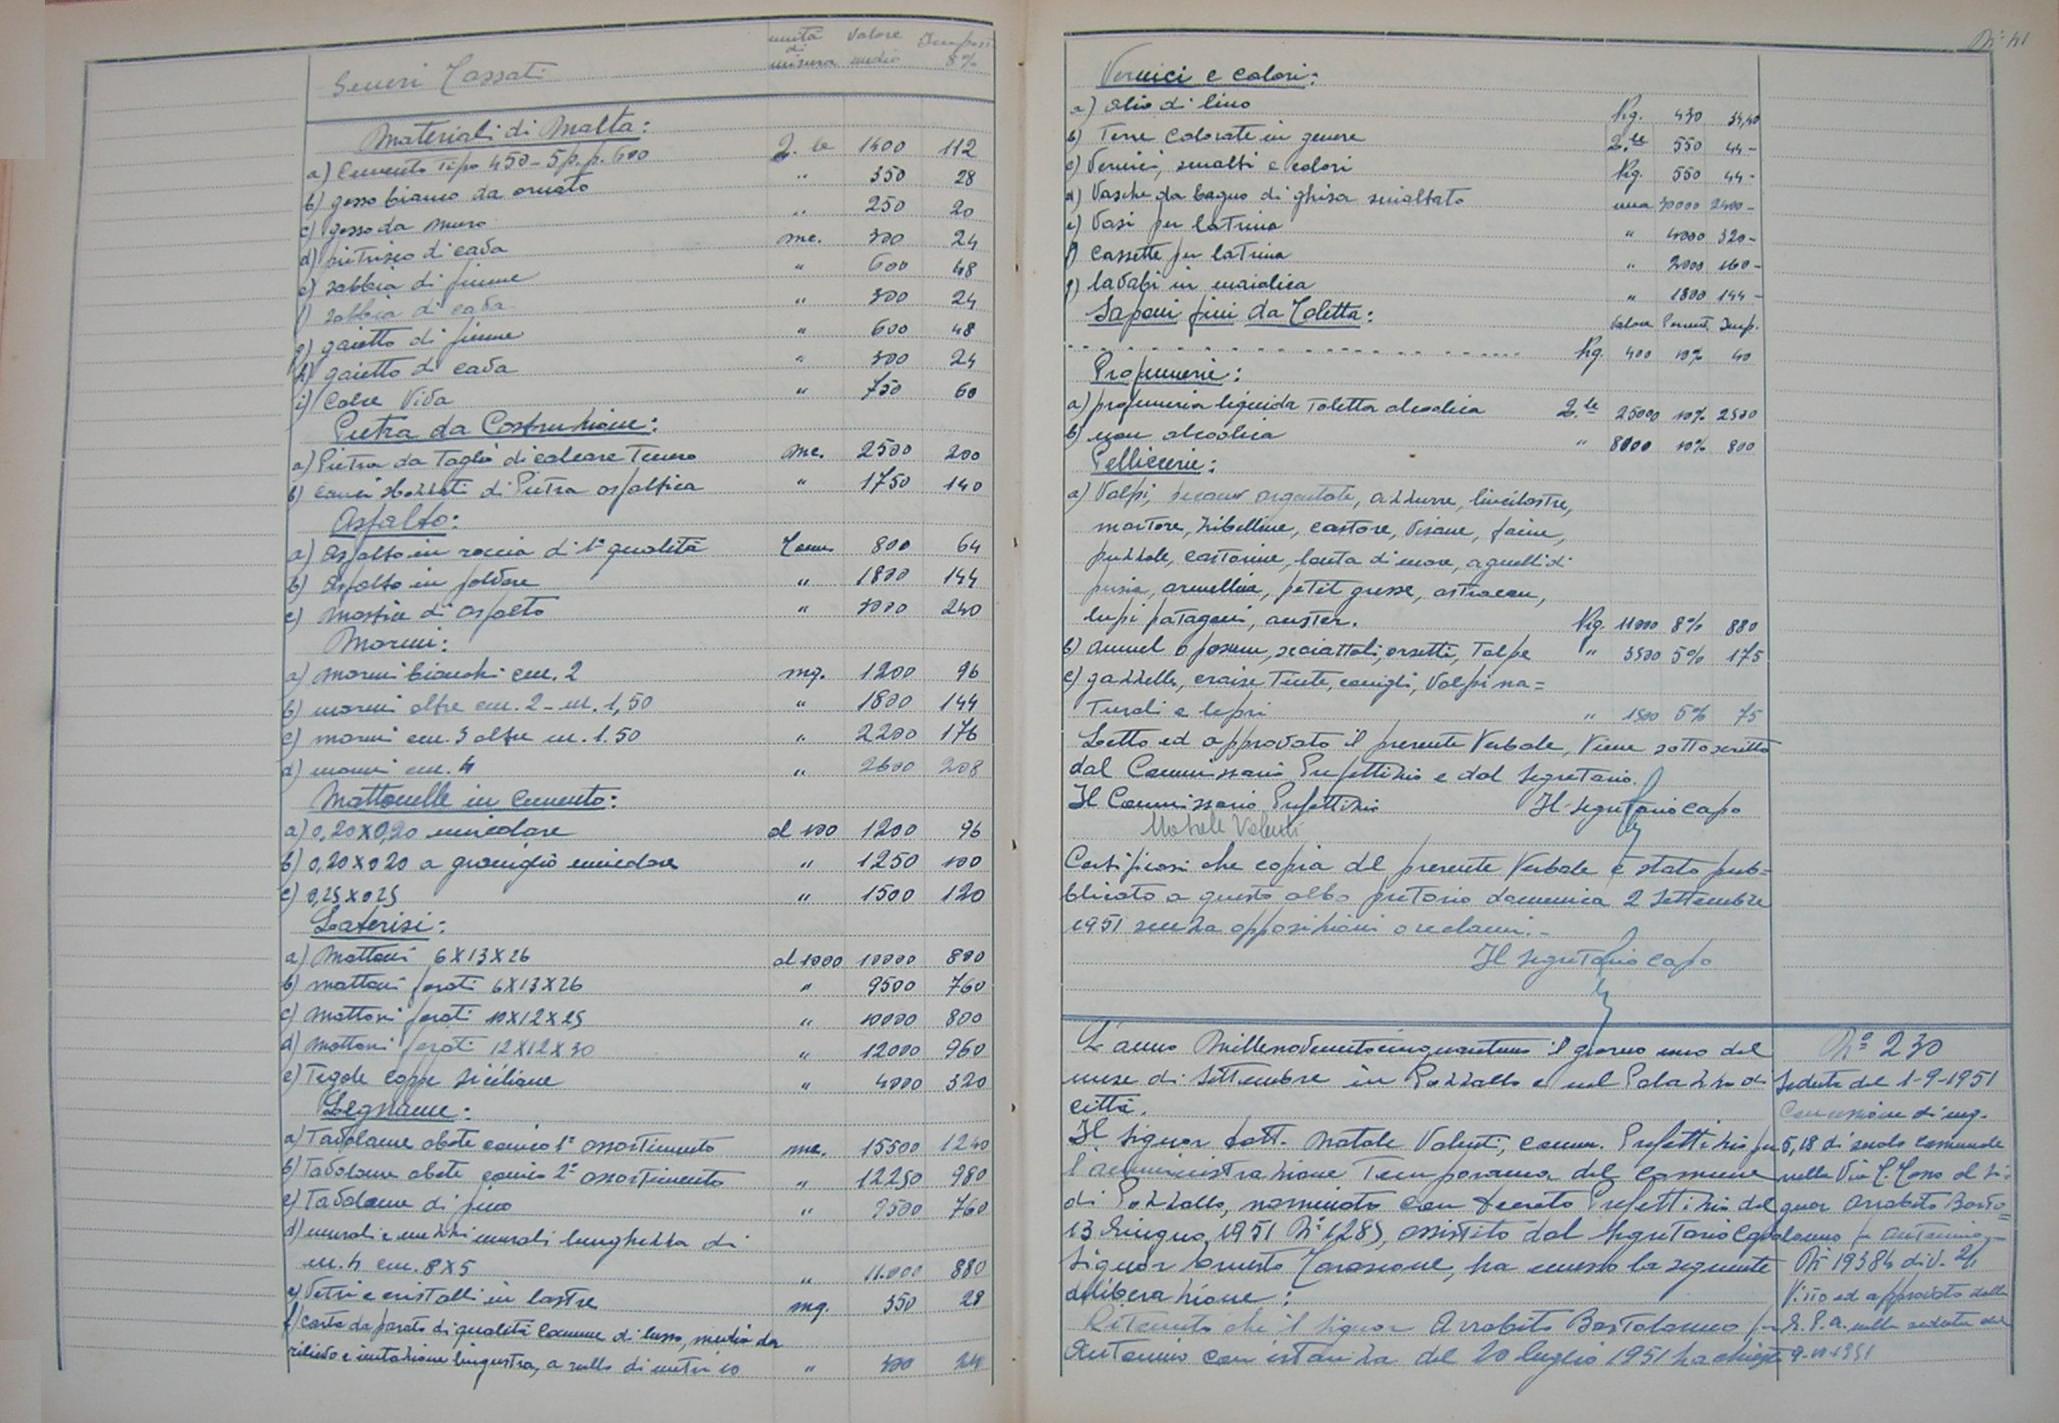 Generi Tassati unità di misura Valore medio Impost. 8%
Materiali di Malta:
a) Cemento Tipo 450-5 p.p. 600 Q.le 1400 112
b) gesso bianco da ornato " 350 28
c) gesso da muro " 250 20
d) pietrisco di cava mc. 300 24
e) sabbia di fiume " 600 48
f) sabbia di cava " 300 24
g) gaietto di fiume " 600 48
h) gaietto di cava " 300 24
i) Calce Viva " 750 60
Pietra da Costruzione:
a) Pietra da Taglio di calcare Tenero mc. 2500 200
b) conci sbozzati di Pietra asfaltica " 1750 140
Asfalto:
a) Asfalto in roccia di 1ª qualità Tonn. 800 64
b) Asfalto in polvere " 1800 144
c) mastice di asfalto " 3000 240
Marmi:
a) marmi bianchi cm. 2 mq. 1200 96
b) marmi oltre cm. 2 - m. 1,50 " 1800 144
c) marmi cm. 3 oltre m. 1.50 " 2200 176
d) marmi cm. 4 " 2600 208
Mattonelle in Cemento:
a) 0,20x0,20 unicolore al 100 1200 96
b) 0,20x020 a graniglia unicolore " 1250 100
c) 0,25x025 " 1500 120
Laterizi:
a) Mattoni 6X13X26 al 1000 10000 800
b) mattoni forati 6X13X26 " 9500 760
c) Mattoni forati 10X12X25 " 10000 800
d) Mattoni forati 12X12X30 " 12000 960
e) Tegole coppe siciliane " 4000 320
Legname:
a) Tavolame abete conico 1º assortimento mc. 15500 1240
b) Tavolame abete conico 2º assortimento " 12250 980
c) Tavolame di pino " 9500 760
d) murali e mezzi murali lunghezza di
m. 4 cm. 8X5 " 11.000 880
e) Vetri e cristalli in lastre mq. 350 28
f) carta da parati di qualità comune di lusso, media da
rilievo e imitazione linguistra, a rullo di metri 10 " 300
Nº 41
Vernici e colori:
a) olio di lino Kg. 430 34,40
b) Terre colorate in genere Q.le 550 44-
c) Vernici, smalti e colori Kg. 550 44-
d) Vasche da bagno di ghisa smaltato una 30000 2400-
e) Vasi per latrina " 4000 320-
f) cassette per latrina " 2000 160-
g) lavabi in maiolica " 1800 144-
Saponi fini da Toletta: Valore Percent. Imp.
Kg. 400 10% 40
Profumerie:
a) profumeria liquida Toletta alcoolica Q.le 25000 10% 2500
b) non alcoolica " 8000 10% 800
Pelliccerie:
a) Volpi, argentate, azzurre, lincilastre,
martore, zibelline, castoro, Visone, faine,
puzzole, castorine, lontra di mare, agnelli di
persia, armellina, petit grisse, astracan,
lupi patagoni, auster. Kg. 11000 8% 880
b) annuel oposum, sciattoli, orsetti, Talpe " 3500 5% 175
c) gazzelle, Tinte, conigli, Volpi na=
Turali e lepri " 1500 5% 75
Letto ed approvato il presente Verbale, Viene sottoscritto
dal Commissario Prefettizio e dal Segretario.
Il Commissario Prefettizio Il Segretario capo
Natale Valenti
Certificasi che copia del presente Verbale è stato pub=
blicato a questo albo pretorio domenica 2 Settembre
1951 senza opposizioni o reclami.-
Il Segretario capo
L'anno Millenovecentocinquantuno il giorno uno del
mese di Settembre in Pozzallo e nel Palazzo di
città.
Il Signor dott. Natale Valenti, comm. Prefettizio per
l'amministrazione Temporanea del Comune
di Pozzallo, nominato con decreto Prefettizio del
13 Giugno 1951 Nº 1285, assistito dal Segretario Capo
Signor Ernesto Tarascone, ha emesso la seguente
deliberazione:
Ritenuto che il Signor Arrabito Bartolomeo fu
Antonino con istanza del 20 luglio 1951 ha chiesto
Nº 230
Seduta del 1-9-1951
Concessione di mq.
5,18 di suolo comunale
nella Via al Si=
gnor Arrabito Barto=
lomeo fu Antonino.-
Nº 19384 div. 2/1
Visto ed approvato dalla
G.P.A. nella seduta del